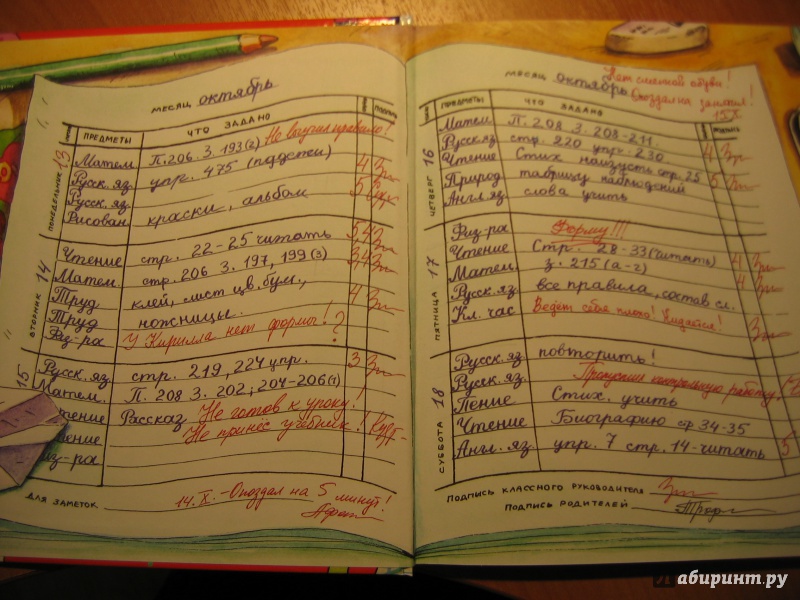 МЕСЯЦ октябрь
ПРЕДМЕТЫ ЧТО ЗАДАНО
ПОНЕДЕЛЬНИК 13
Матем. П. 206 З. 193(2) Не выучил правило!
Русск. яз. упр. 475 (падежи) 4
Русск. яз. 5
Рисован. краски, альбом
ВТОРНИК 14
Чтение стр. 22-25 читать 5,4,3
Матем. стр. 206 З. 197, 199(3) 3,4,3
Труд клей, лист цв. бум.,
Труд ножницы. 4
Физ-ра У Кирилла нет формы! ?
15
Русск. яз. стр. 219, 224 упр. 3
Матем. П. 208 З. 202, 204-206(1)
Чтение Рассказ Не готов к уроку!
Пение Не принёс учебник!
Физ-ра
ДЛЯ ЗАМЕТОК 14. X. - Опоздал на 5 минут!
Нет сменной обуви!
МЕСЯЦ октябрь Опоздал на занятия!
15.X
ПРЕДМЕТЫ ЧТО ЗАДАНО
ЧЕТВЕРГ 16
Матем. П. 208 З. 208-211.
Русск яз стр. 220 упр. 230 4
Чтение Стих наизусть стр. 25
Природ таблицу наблюдений 5
Англ. яз слова учить
ПЯТНИЦА 17
Физ-ра Форму!!!
Чтение Стр. 28-33 (читать) 4
Матем з. 215 (а-г) 4
Русск. яз. все правила, состав сл.
Кл. час Ведёт себя плохо! Кидается!
СУББОТА 18
Русск. яз повторить!
Русск. яз. Пропустил контрольную работу!
Пение Стих. учить
Чтение Биографию стр 34-35
Англ. яз упр. 7 стр. 14-читать 5
ПОДПИСЬ КЛАССНОГО РУКОВОДИТЕЛЯ
ПОДПИСЬ РОДИТЕЛЕЙ
Лабиринт.ру